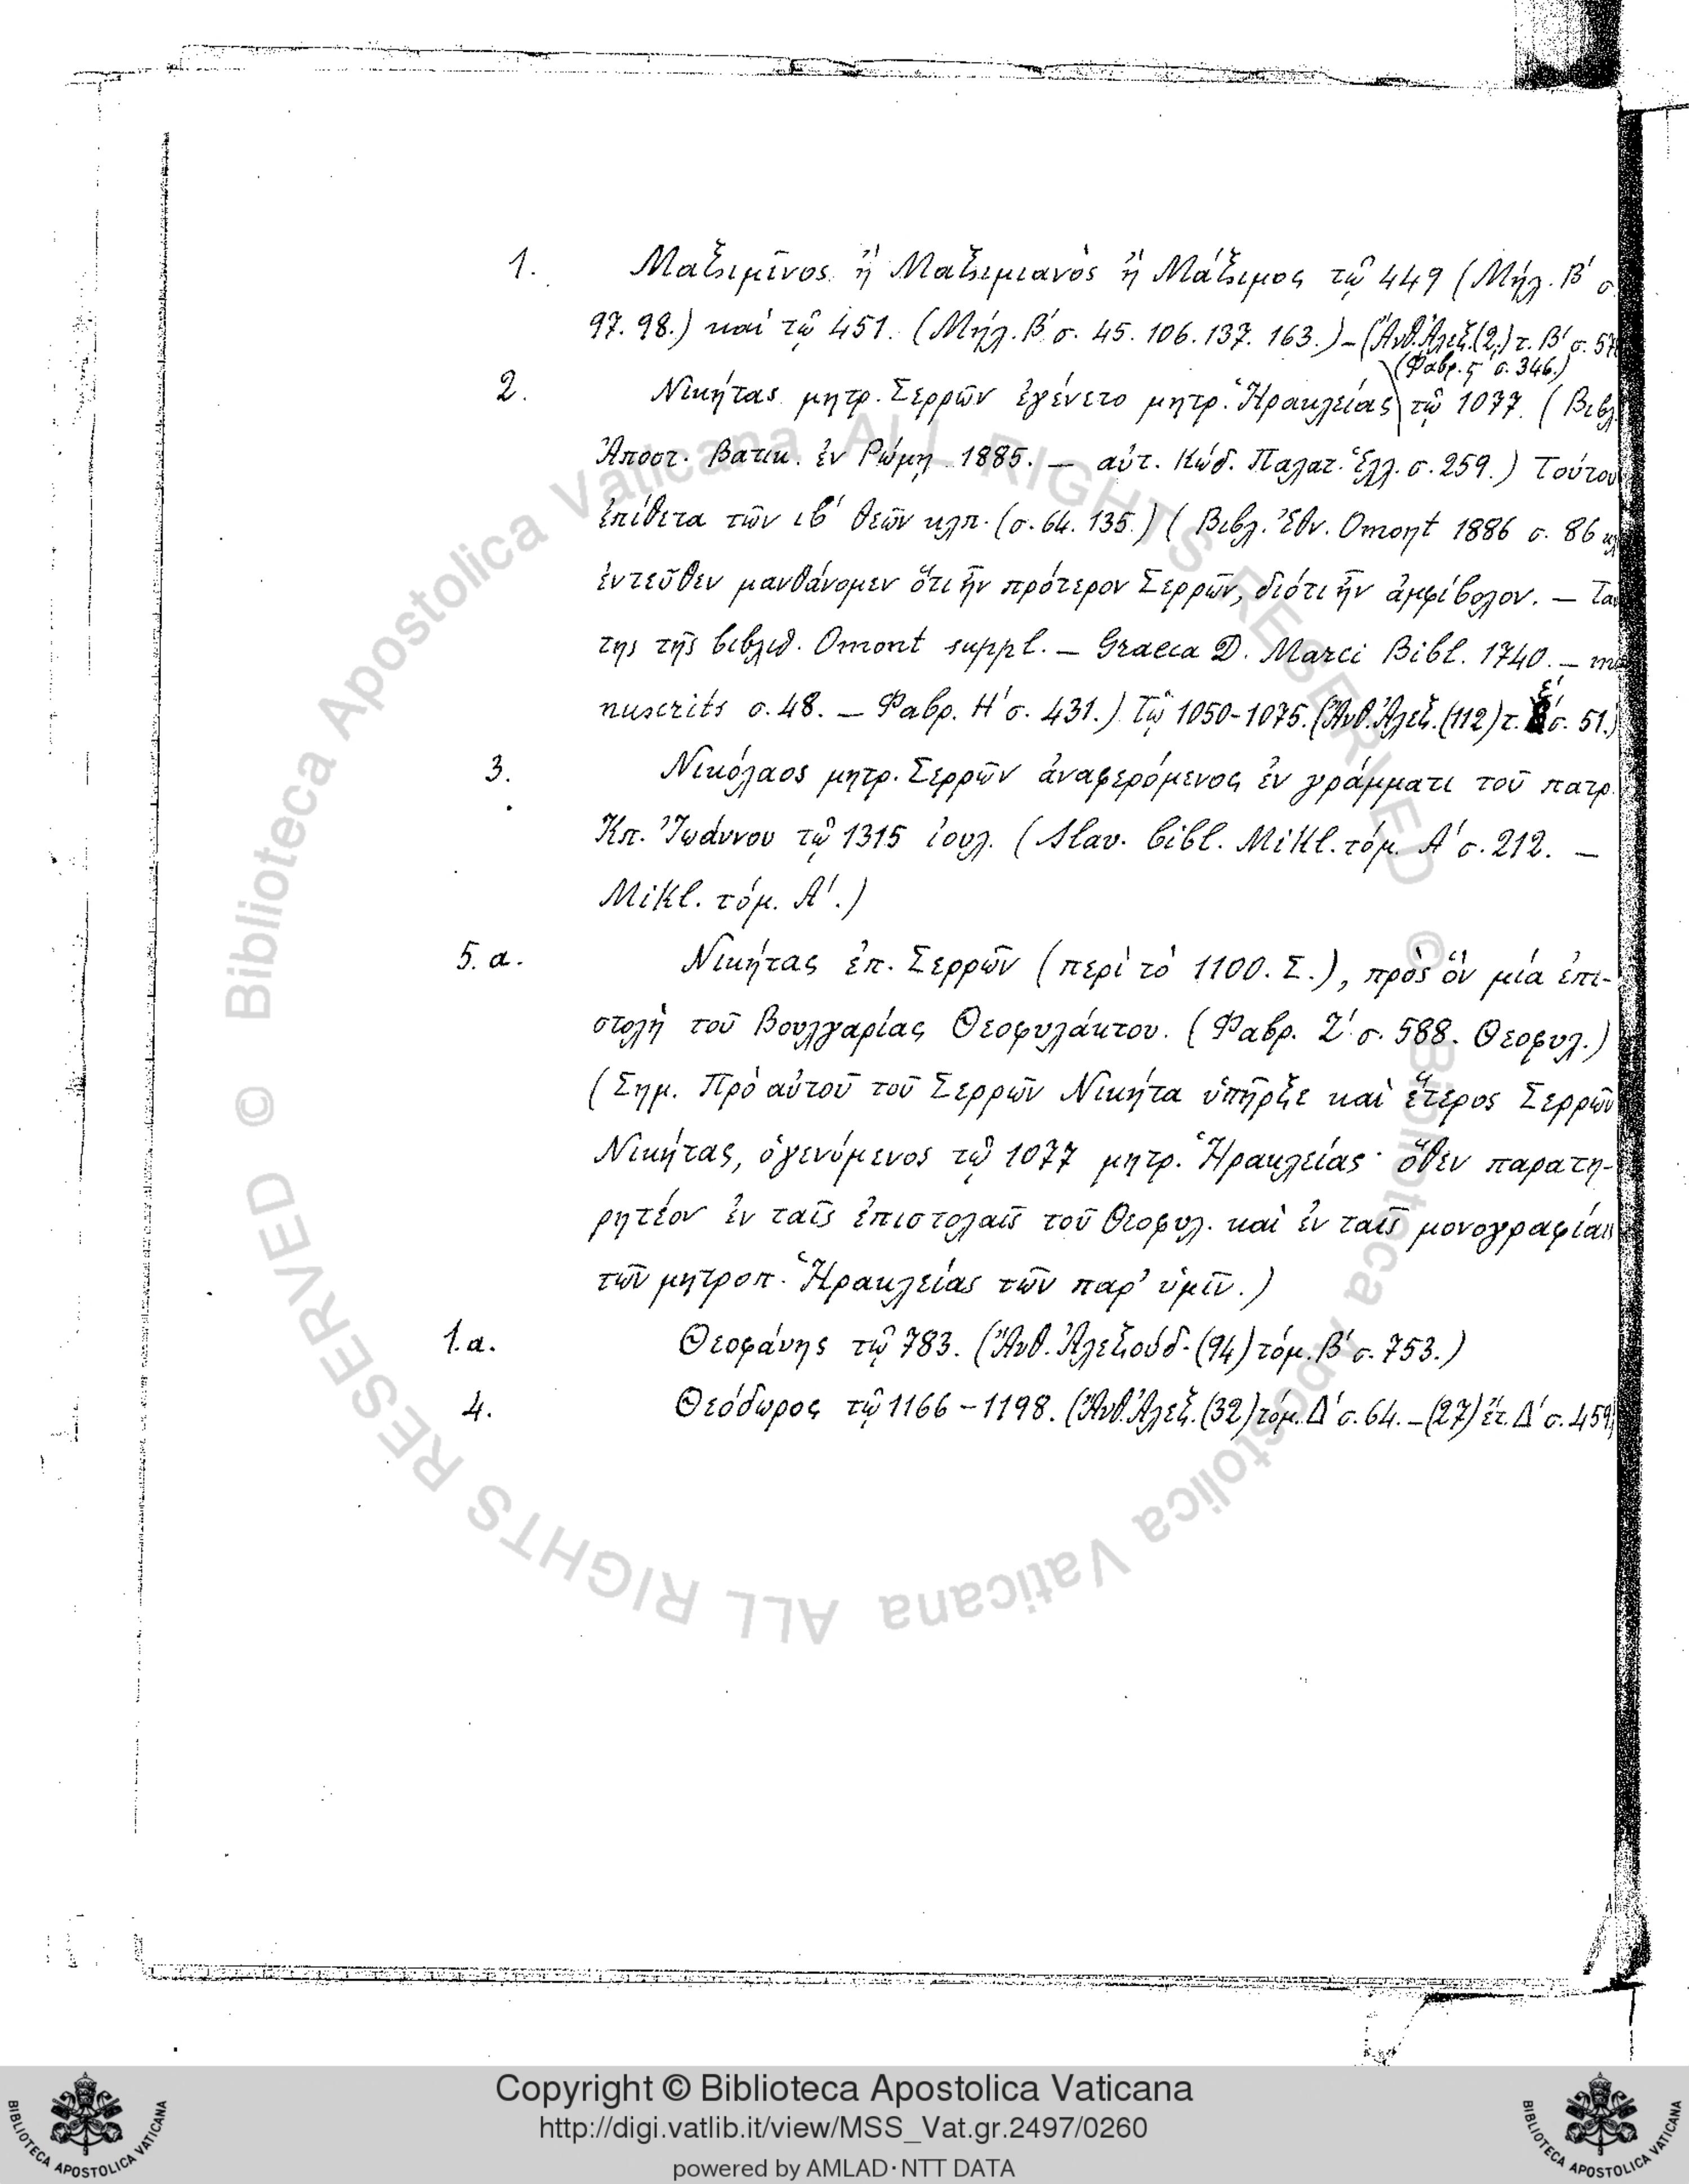 1. Μαξιμῖνος ἢ Μαξιμιανὸς ἢ Μάξιμος τῷ 449 (Μήλ. Β' σ.
97. 98.) καὶ τῷ 451. (Μήλ. Β' σ. 45. 106. 137. 163.) – (Ἄνθ. Ἀλεξ. (2.) τ. Β' σ. 57
(Φαβρ. ς' σ. 346.)
2. Νικήτας μητρ. Σερρῶν ἐγένετο μητρ. Ἡρακλείας τῷ 1077. (Βιβλ
Ἀποστ. Βατικ. ἐν Ρώμῃ 1885. — αὐτ. Κώδ. Παλατ. Ἑλλ. σ. 259.) Τούτου
ἐπίθετα τῶν ιβ' θεῶν κλπ. (σ. 64. 135.) (Βιβλ. Ἐθν. Omont 1886 σ. 86
ἐντεῦθεν μανθάνομεν ὅτι ἦν πρότερον Σερρῶν, διότι ἦν ἀμφίβολον. — Τα
της τῆς βιβλιθ. Omont suppl. — Graeca D. Marci Bibl. 1740. — ma
nuscrits σ. 48. — Φαβρ. Η' σ. 431.) Τῷ 1050-1075. (Ἄνθ. Ἀλεξ. (112) τ. ε' σ. 51.)
3. Νικόλαος μητρ. Σερρῶν ἀναφερόμενος ἐν γράμματι τοῦ πατρ.
Κπ. Ἰωάννου τῷ 1315 ἰουλ. (Slav. bibl. Mikl. τόμ. Α' σ. 212. —
Mikl. τόμ. Α'.)
5. α. Νικήτας ἐπ. Σερρῶν (περὶ τὸ 1100. Σ.), πρὸς ὃν μία ἐπι-
στολὴ τοῦ Βουλγαρίας Θεοφυλάκτου. (Φαβρ. Ζ' σ. 588. Θεοφυλ.)
(Σημ. Πρὸ αὐτοῦ τοῦ Σερρῶν Νικήτα ὑπῆρξε καὶ ἕτερος Σερρῶν
Νικήτας, ὁ γενόμενος τῷ 1077 μητρ. Ἡρακλείας· ὅθεν παρατη-
ρητέον ἐν ταῖς ἐπιστολαῖς τοῦ Θεοφυλ. καὶ ἐν ταῖς μονογραφίαις
τῶν μητροπ. Ἡρακλείας τῶν παρ' ὑμῖν.)
1. α. Θεοφάνης τῷ 783. (Ἄνθ. Ἀλεξούδ. (94) τόμ. Β' σ. 753.)
4. Θεόδωρος τῷ 1166 – 1198. (Ἄνθ. Ἀλεξ. (32) τόμ. Δ' σ. 64. – (27) ἔτ. Δ' σ. 459
© Biblioteca Apostolica Vaticana ALL RIGHTS RESERVED © Biblioteca Apostolica Vaticana ALL RIGHTS RESERVED
Copyright © Biblioteca Apostolica Vaticana
http://digi.vatlib.it/view/MSS_Vat.gr.2497/0260
powered by AMLAD·NTT DATA
BIBLIOTECA APOSTOLICA VATICANA
BIBLIOTECA APOSTOLICA VATICANA